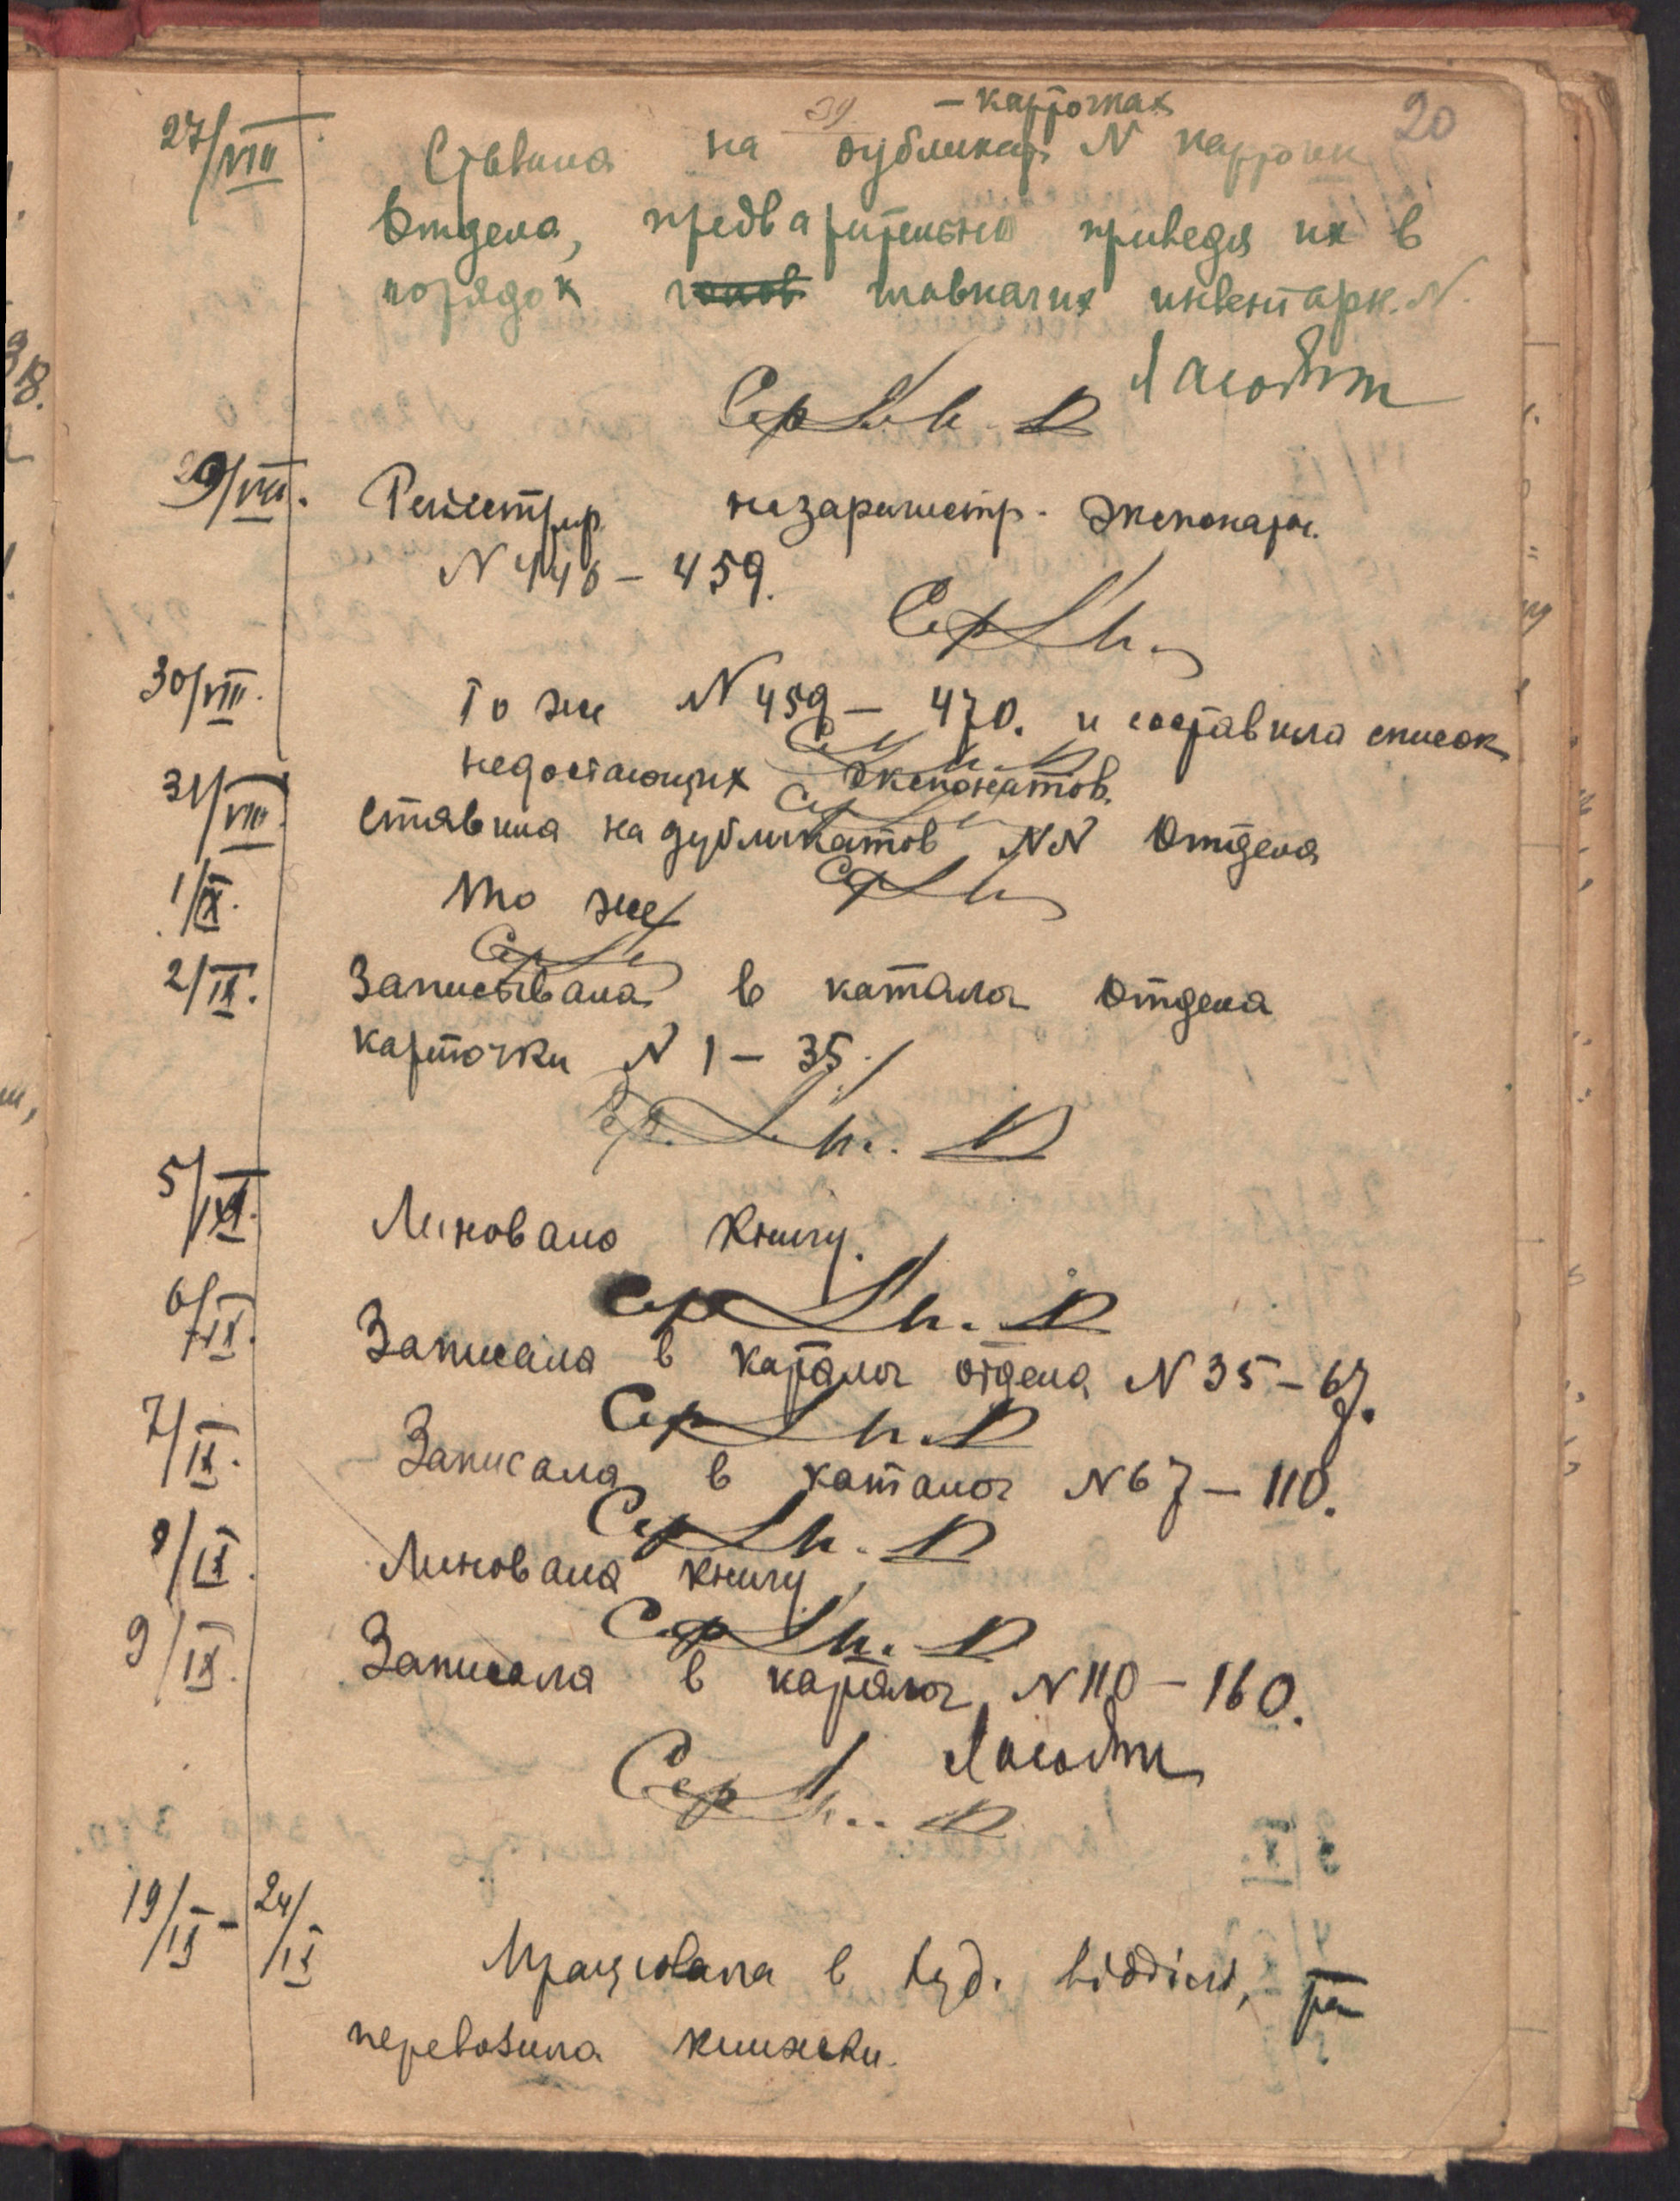 20
39
– карточках
27/VIII Ставила на дубликат. N карточки
Отдела, предварительно приведя их в
порядок главначих инвентарн. N.
29/VIII. Регистрир. незарегистр. экспонаты.
N 448 – 459.
30/VIII. То же N 459 – 470. и составила список
недостающих экспонатов.
31/VIII. Ставила на дубликатов NN Отдела
1/IX. то же
2/IX. Записывала в каталог Отдела
карточки N 1 – 35.
5/IX. Линовала книгу.
6/IX. Записала в каталог отдела N 35 – 67.
7/IX. Записала в каталог N 67 – 110.
8/IX. Линовала книгу
9/IX. Записала в каталог N 110 – 160.
19/IX – 24/IX
Працювала в худ. відділі,
перевозила книжки.